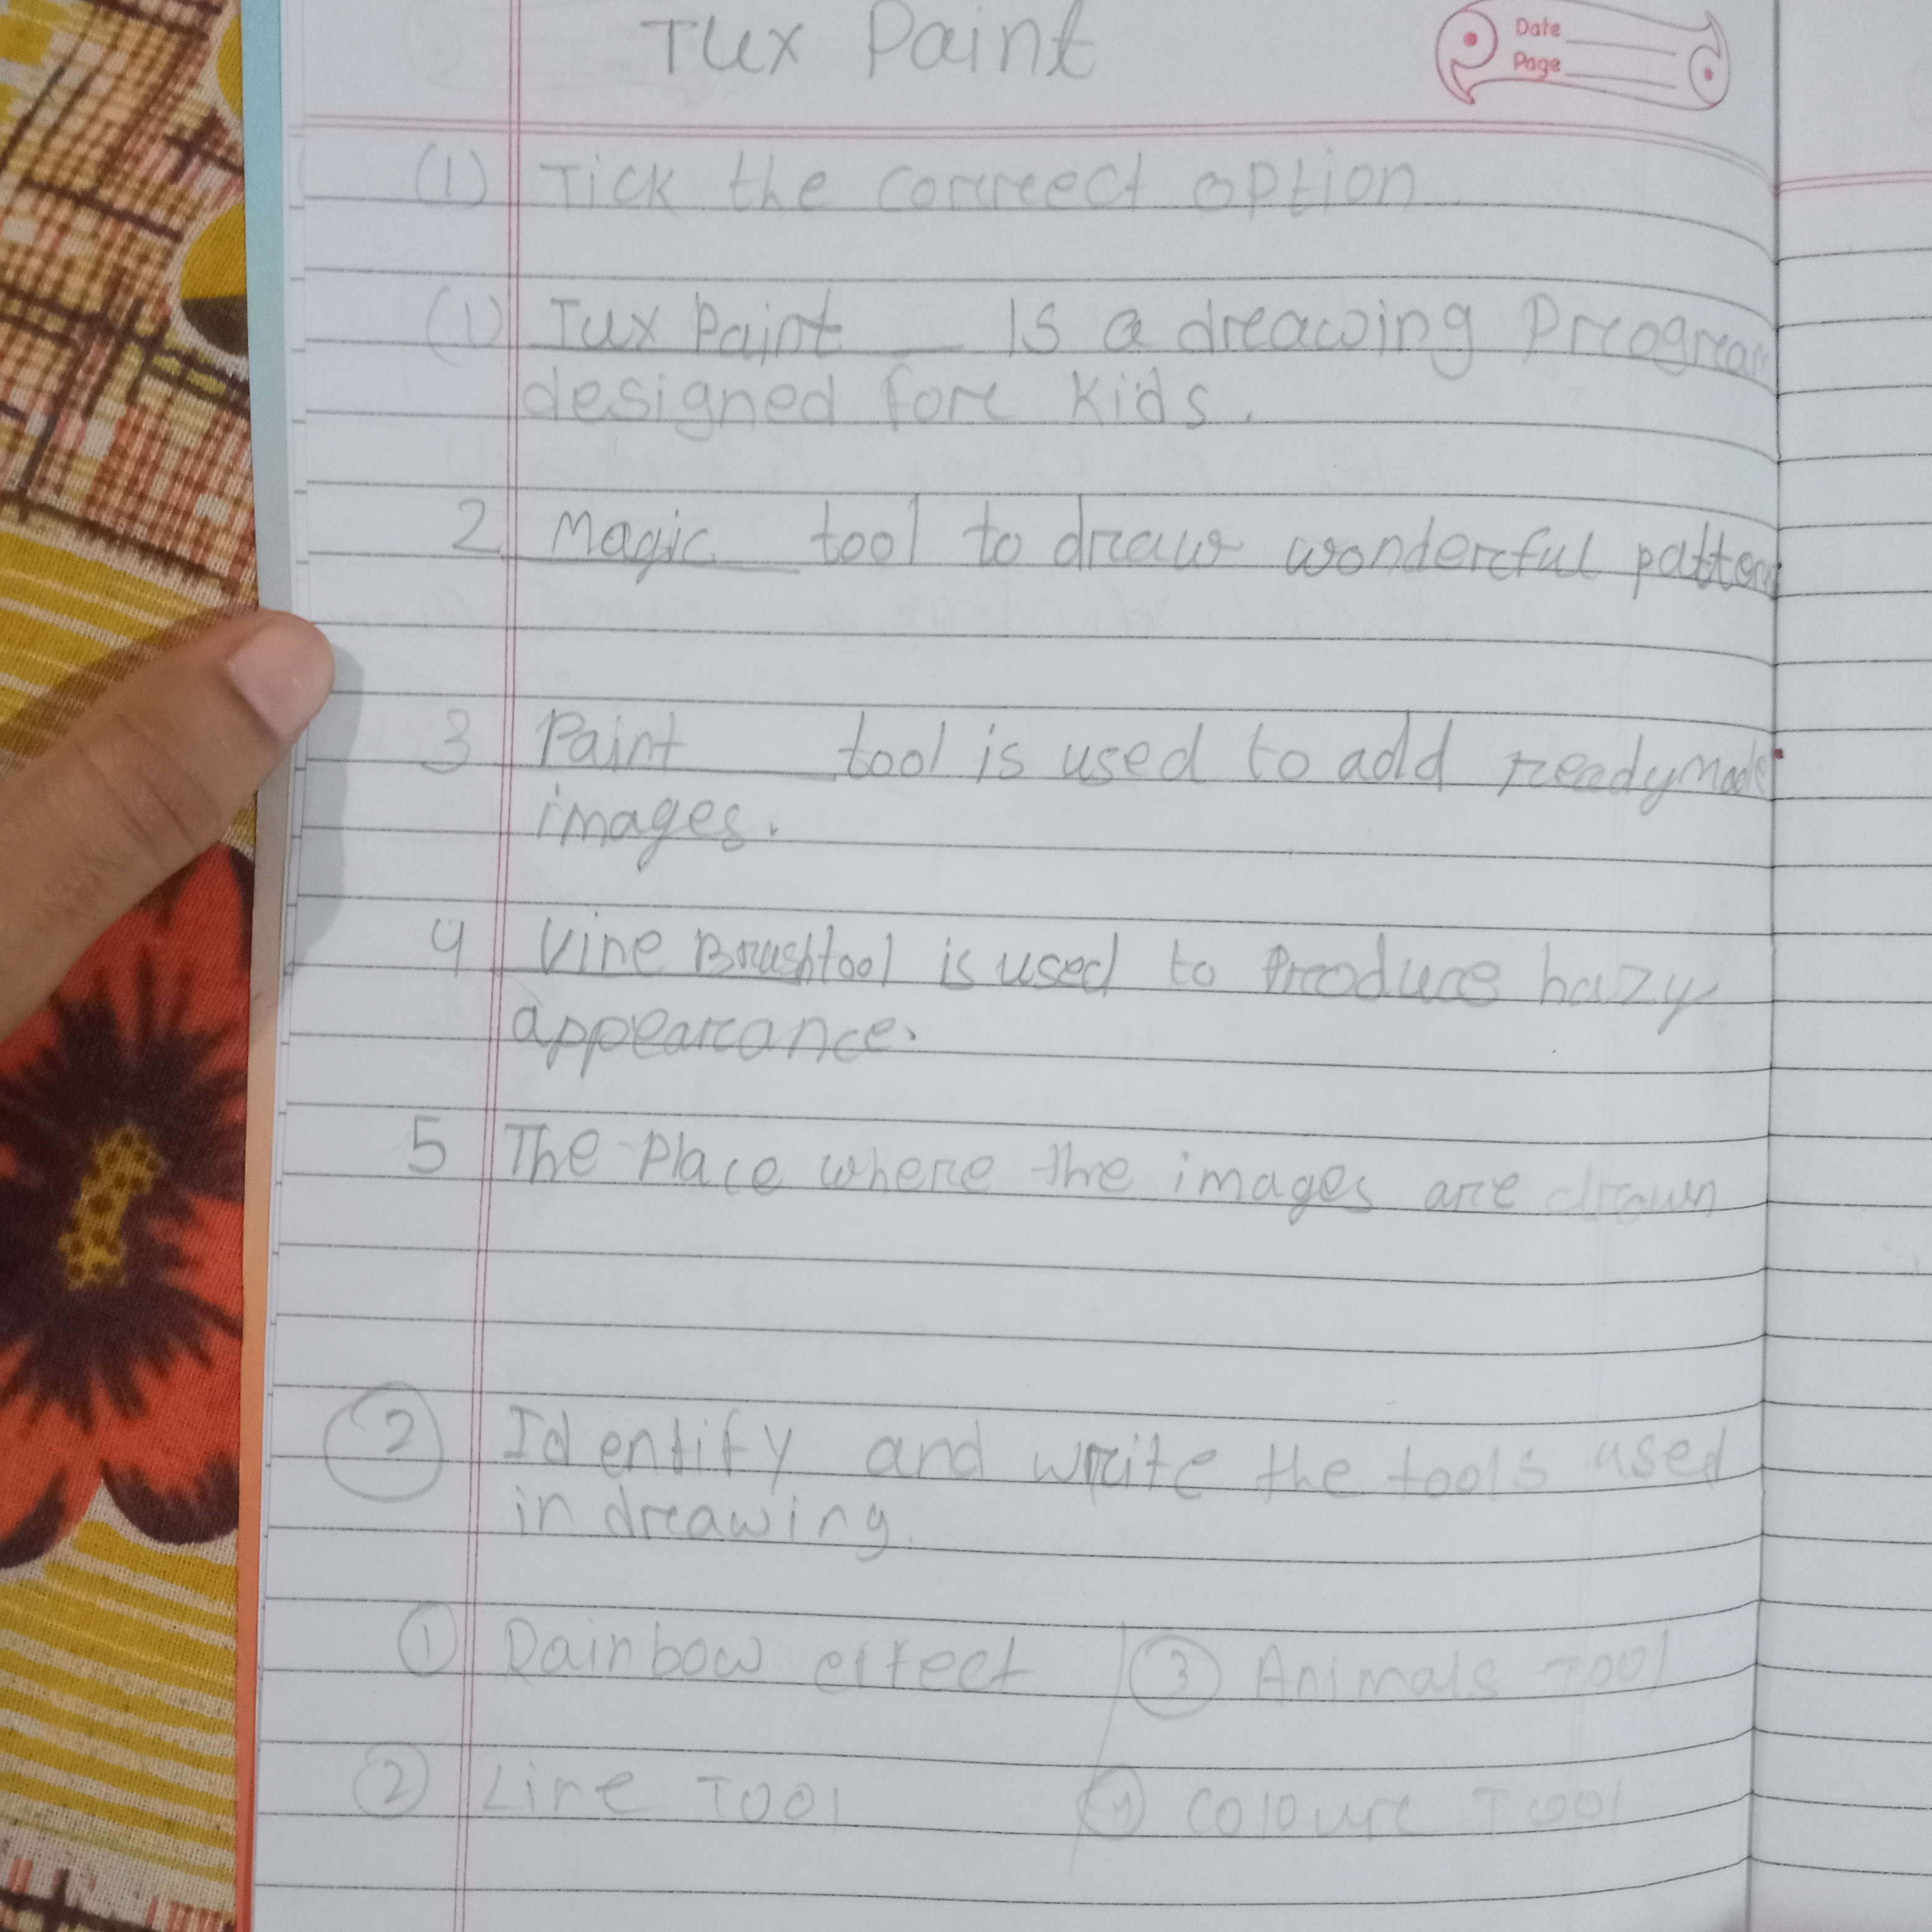 Tux Paint
Date
Page
(1) Tick the correct option
(1) Tux Paint Is a drawing Program
designed for Kids.
2 Magic tool to draw wonderful pattern
3 Paint tool is used to add readymade
images.
4 Vine Brush tool is used to Produce hazy
appearance.
5 The Place where the images are drown
2 Identify and write the tools used
in drawing.
1 Rainbow effect 3 Animals Tool
2 Line Tool 4 Colour Tool